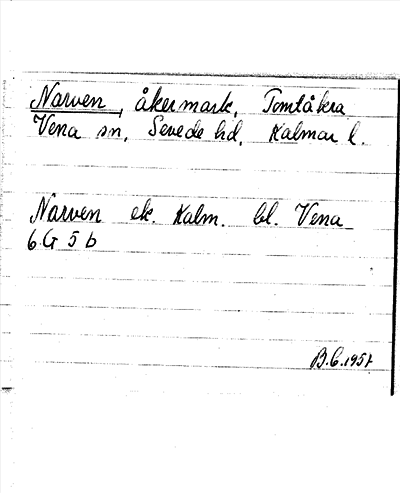 Narven, åkermark, Tomtåkra
Vena sn, Sevede hd, Kalmar l.
Narven ek. Kalm. bl. Vena
6 G 5 b
B.C. 1957